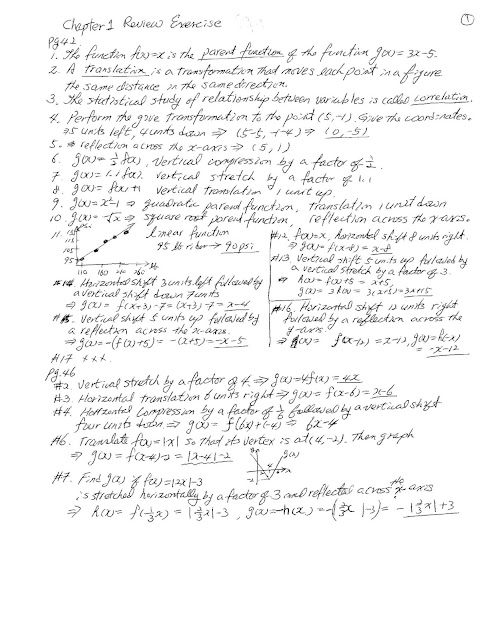 Chapter 1 Review Exercise
①
Pg 42
1. The function f(x)=x is the parent function of the function g(x) = 3x-5.
2. A translation is a transformation that moves each point in a figure
the same distance in the same direction.
3. The statistical study of relationship between variables is called correlation.
4. Perform the give transformation to the point (5,-1). Give the coordinates.
5 units left, 4 units down ⇒ (5-5, -1-4) ⇒ (0,-5)
5. reflection across the x-axis ⇒ (5,1)
6. g(x)= ½ f(x), vertical compression by a factor of ½.
7. g(x)= 1.1 f(x), vertical stretch by a factor of 1.1
8. g(x)= f(x)+1 vertical translation 1 unit up.
9. g(x)= x²-1 ⇒ quadratic parent function, translation 1 unit down
10. g(x)= -√x ⇒ square root parent function, reflection across the x-axis.
11. psi
135
125
115
95
110 180 210 260 lb
linear function
95 lb rider → 90 psi
#12. f(x)=x, horizontal shift 8 units right.
⇒ g(x)= f(x-8) = x-8
#13. Vertical shift 5 units up followed by
a vertical stretch by a factor of 3.
⇒ h(x)= f(x)+5 = x+5,
g(x)= 3 h(x) = 3(x+5) = 3x+15
#14. Horizontal shift 3 units left followed by
a vertical shift down 7 units
⇒ g(x) = f(x+3)-7 = (x+3)-7 = x-4
#15. Vertical shift 5 units up followed by
a reflection across the x-axis.
⇒ g(x)= -(f(x)+5) = -(x+5) = -x-5
#16. Horizontal shift 12 units right
followed by a reflection across the
y-axis.
⇒ h(x)= f(x-12) = x-12, g(x)= h(-x)
= -x-12
#17 ***
Pg. 46
#2. Vertical stretch by a factor of 4. ⇒ g(x)=4f(x) = 4x
#3. Horizontal translation 6 units right ⇒ g(x) = f(x-6) = x-6
#4. Horizontal compression by a factor of followed by a vertical shift
four units down ⇒ g(x) = f(6x)+(-4) ⇒ 6x-4
#6. Translate f(x)=|x| so that its vertex is at (4,-2). Then graph
⇒ g(x) = f(x-4)-2 = |x-4|-2
g(x)
#7. Find g(x) if f(x)=|2x|-3
is stretched horizontally by a factor of 3 and reflected across the x-axis
⇒ h(x) = f(⅓x) = |⅔x|-3, g(x)=-h(x) = -(|⅔x|-3) = -|⅔x|+3